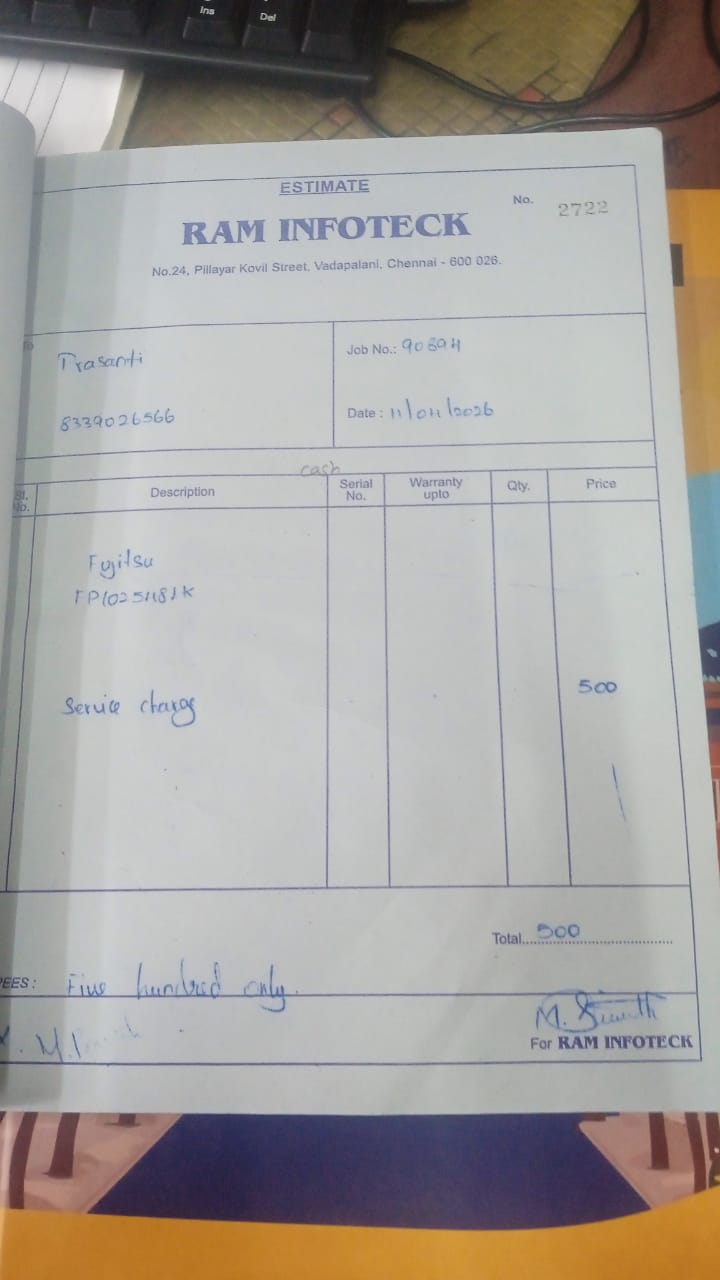 Ins
Del
ESTIMATE
No. 2722
RAM INFOTECK
No.24, Pillayar Kovil Street, Vadapalani, Chennai - 600 026.
Job No.:
8339026566
Date : 11/04/2026
cash
Sl. No. Description Serial No. Warranty upto Qty. Price
Fujitsu
Service charge 500
Total 500
EES : Five hundred only.
M.
For RAM INFOTECK